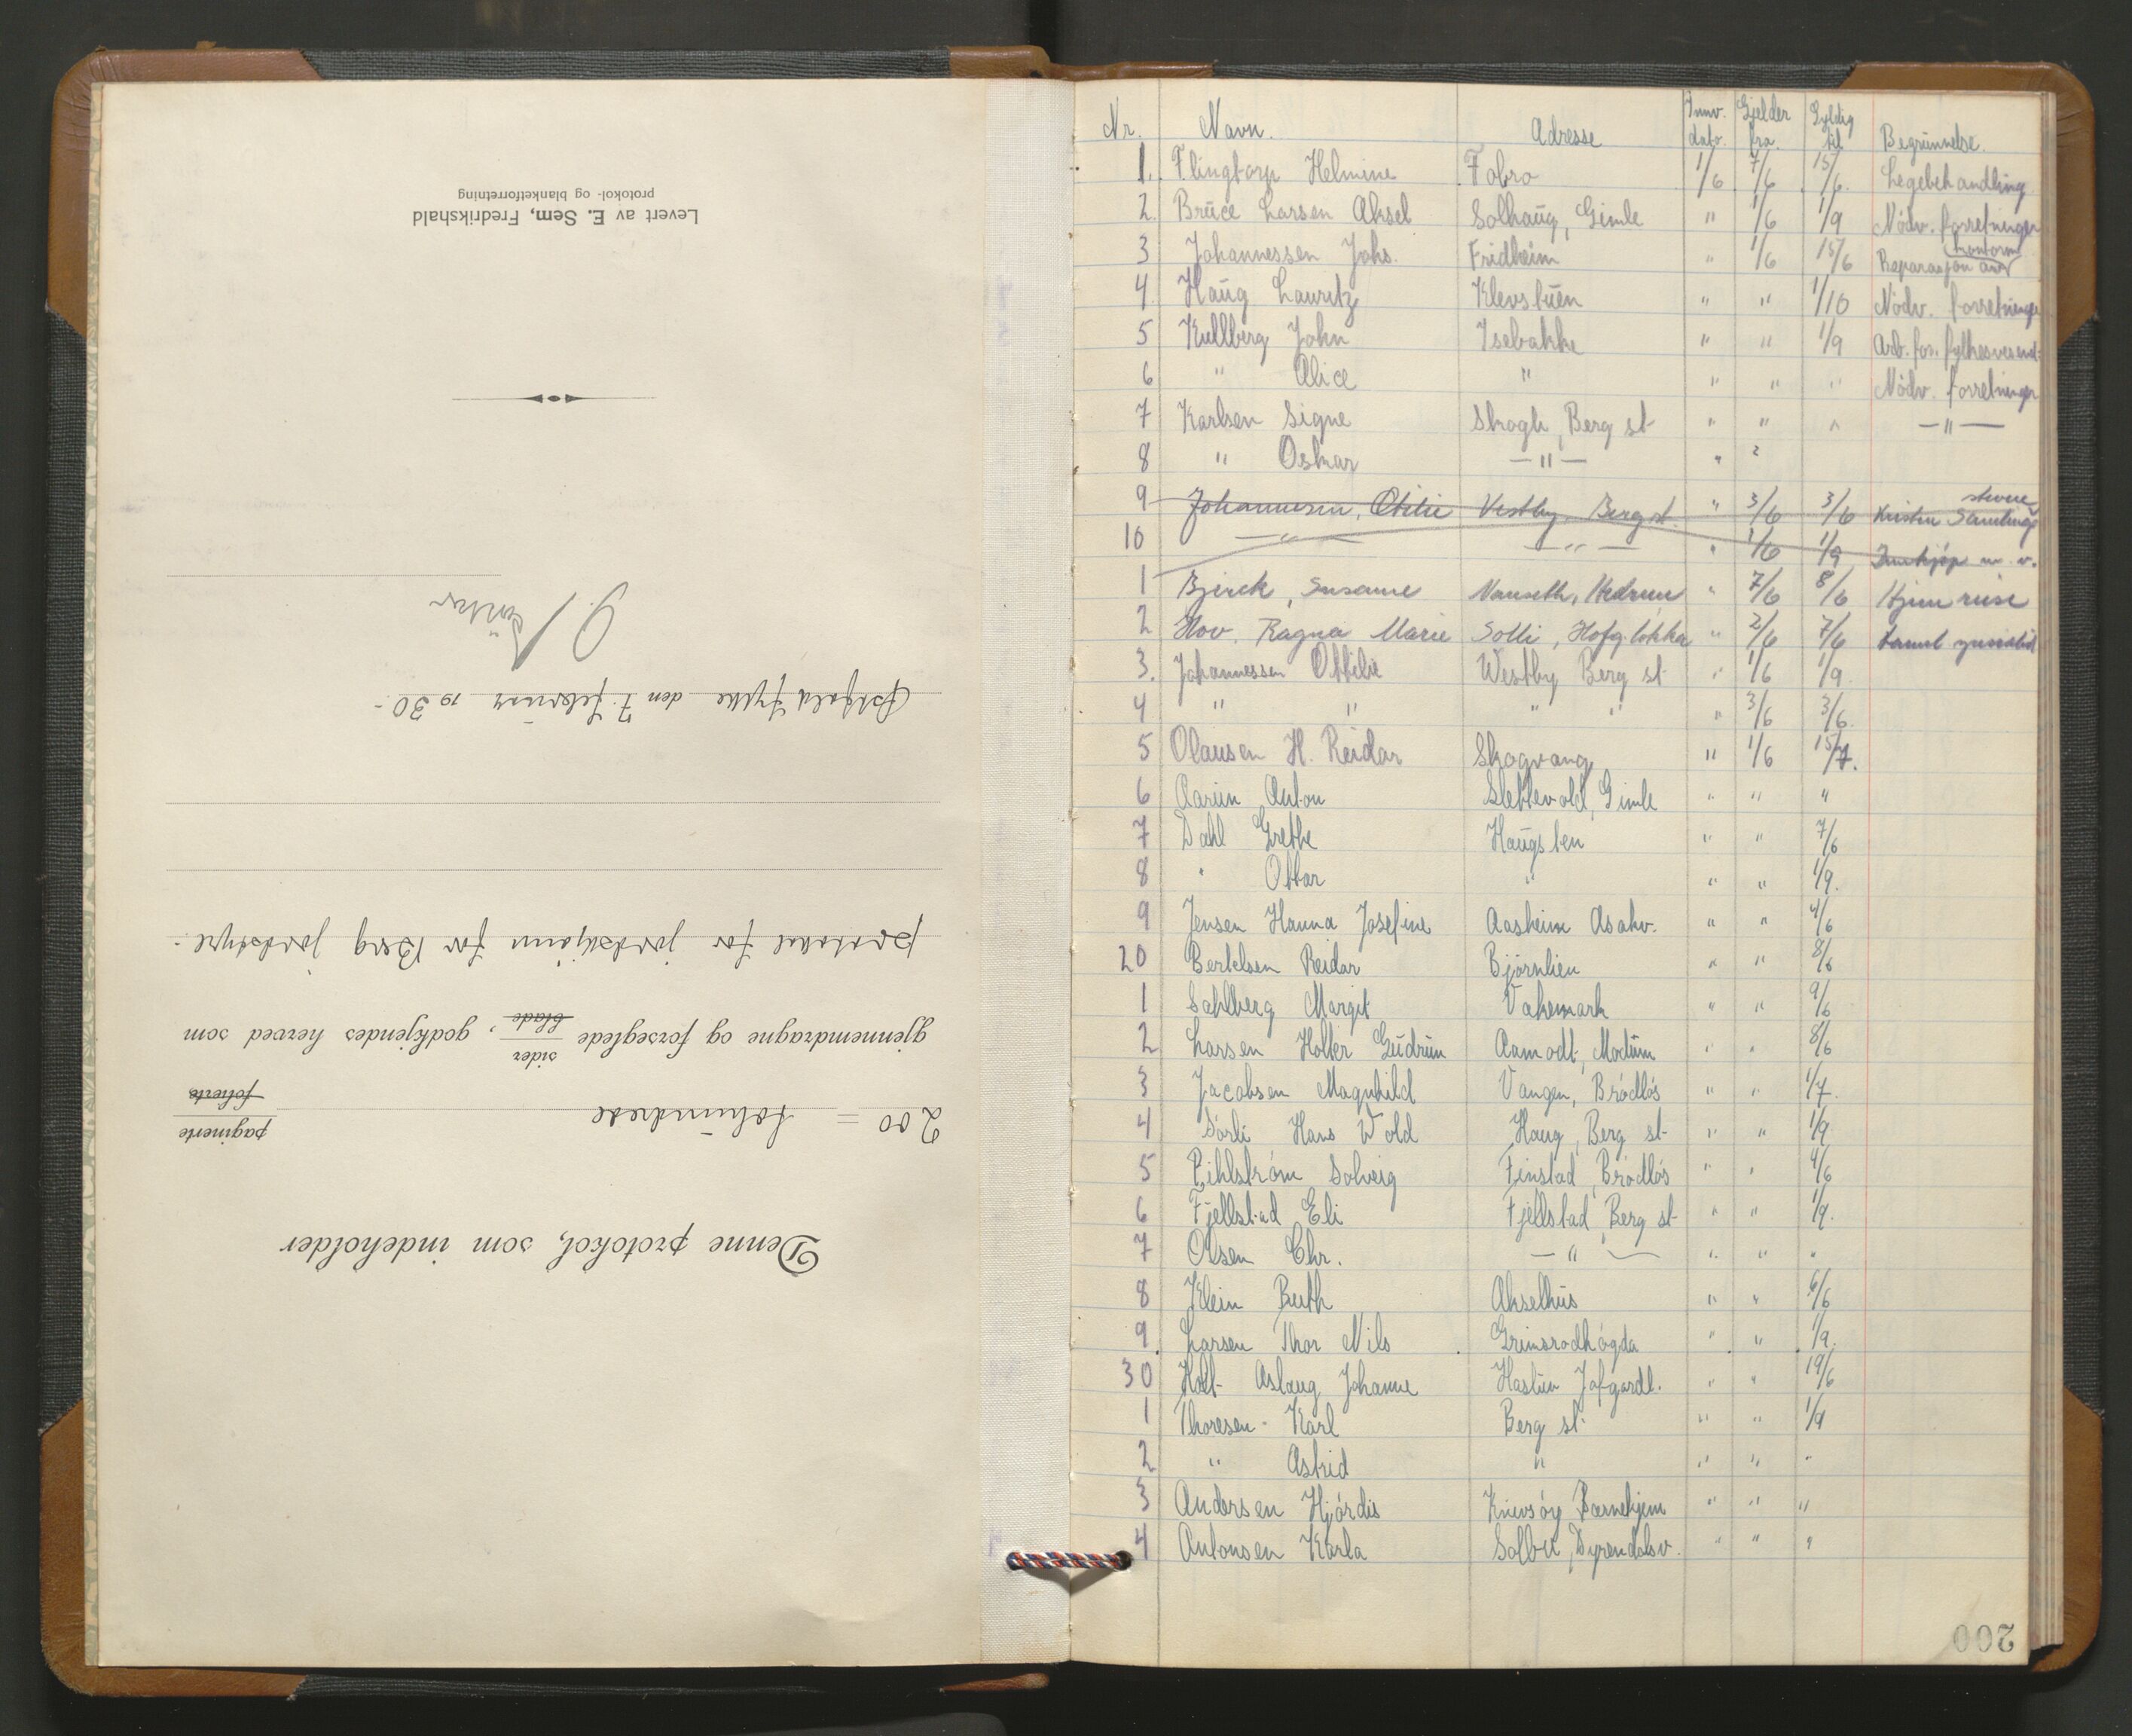 Denne protokol, som indeholder
200 = tohundrede paginerte
folierte
gjennemdragne og forseglede sider
blade, godkjendes herved som
protokol for jordskjønn for Berg jordstyre.
Østfold fylke den 7. februar 1930.
Levert av E. Sem, Fredrikshald
protokol- og blanketforretning
Nr. Navn. Adresse Innv. dato. Gjelder fra. Gyldig til Begrunnelse.
1. Flingtorp Helmine Fobro 1/6 7/6 15/6. Legebehandling
2. Bruce Larsen Aksel Solhaug, Gimle " 1/6 1/9 Nödv. forretninger
3 Johannessen Johs. Fridheim " 1/6 15/6 Reparasjon av
4. Haug Lauritz Klevstuen " " 1/10 Nödv. forretninger
5 Kullberg John Isebakke " " 1/9 Arb. for fylkesvesenet
6 " Alice " " " " Nödv. forretninger
7 Karlsen Signe Skogh, Berg st " " " —"—
8 " Oskar —"— " "
9 Johannesen, Otilie Vestby, Berg st. " 3/6 3/6 Kristen Samlings stevne
10 —"— —"— " 1/6 1/9 Innkjöp m. v.
1 Bjerck, Susanne Nanseth, Hedrum " 7/6 8/6 Hjem reise
2 Hov, Ragna Marie Solli, Hofg.lökka " 2/6 7/6
3. Johannessen Ottilie Westby Berg st " 1/6 1/9.
4 " " " " " 3/6 3/6.
5 Olausen H. Reidar Skogvang " 1/6 15/7.
6 Aarum Anton Slettevold, Gimle " " "
7 Dahl Grethe Haugsten " " 7/6
8 " Ottar " " " 1/9.
9 Jensen Hanna Josefine Aasheim Asakv. " " 4/6
20 Bertelsen Reidar Björnlien " " 8/6
1 Sahlberg Margit Vakemark " " 9/6
2 Larsen Holter Gudrun Aamodt, Modum " " 8/6
3 Jacobsen Magnhild Vangen, Brödlös " " 1/7.
4 Sörli Hans Wold Haug, Berg st " " 1/9
5 Pihlström Solveig Finstad, Brödlös " " 4/6
6 Fjellstad Eli Fjellstad, Berg st " " 1/9.
7 Olsen Chr. —"— " " "
8 Klein Ruth Akselhus " " 6/6
9. Larsen Thor Nils Grimsrodhögda " " 1/9.
30 Holt Aslaug Johanne Hastun Tofgardt. " " 19/6
1 Thoresen Karl Berg st " " 1/9
2 " Astrid " " " "
3 Andersen Hjördis Knivsöy Barnehjem " " "
4 Antonsen Karla Solbu, Dyrendalsv. " " "
200